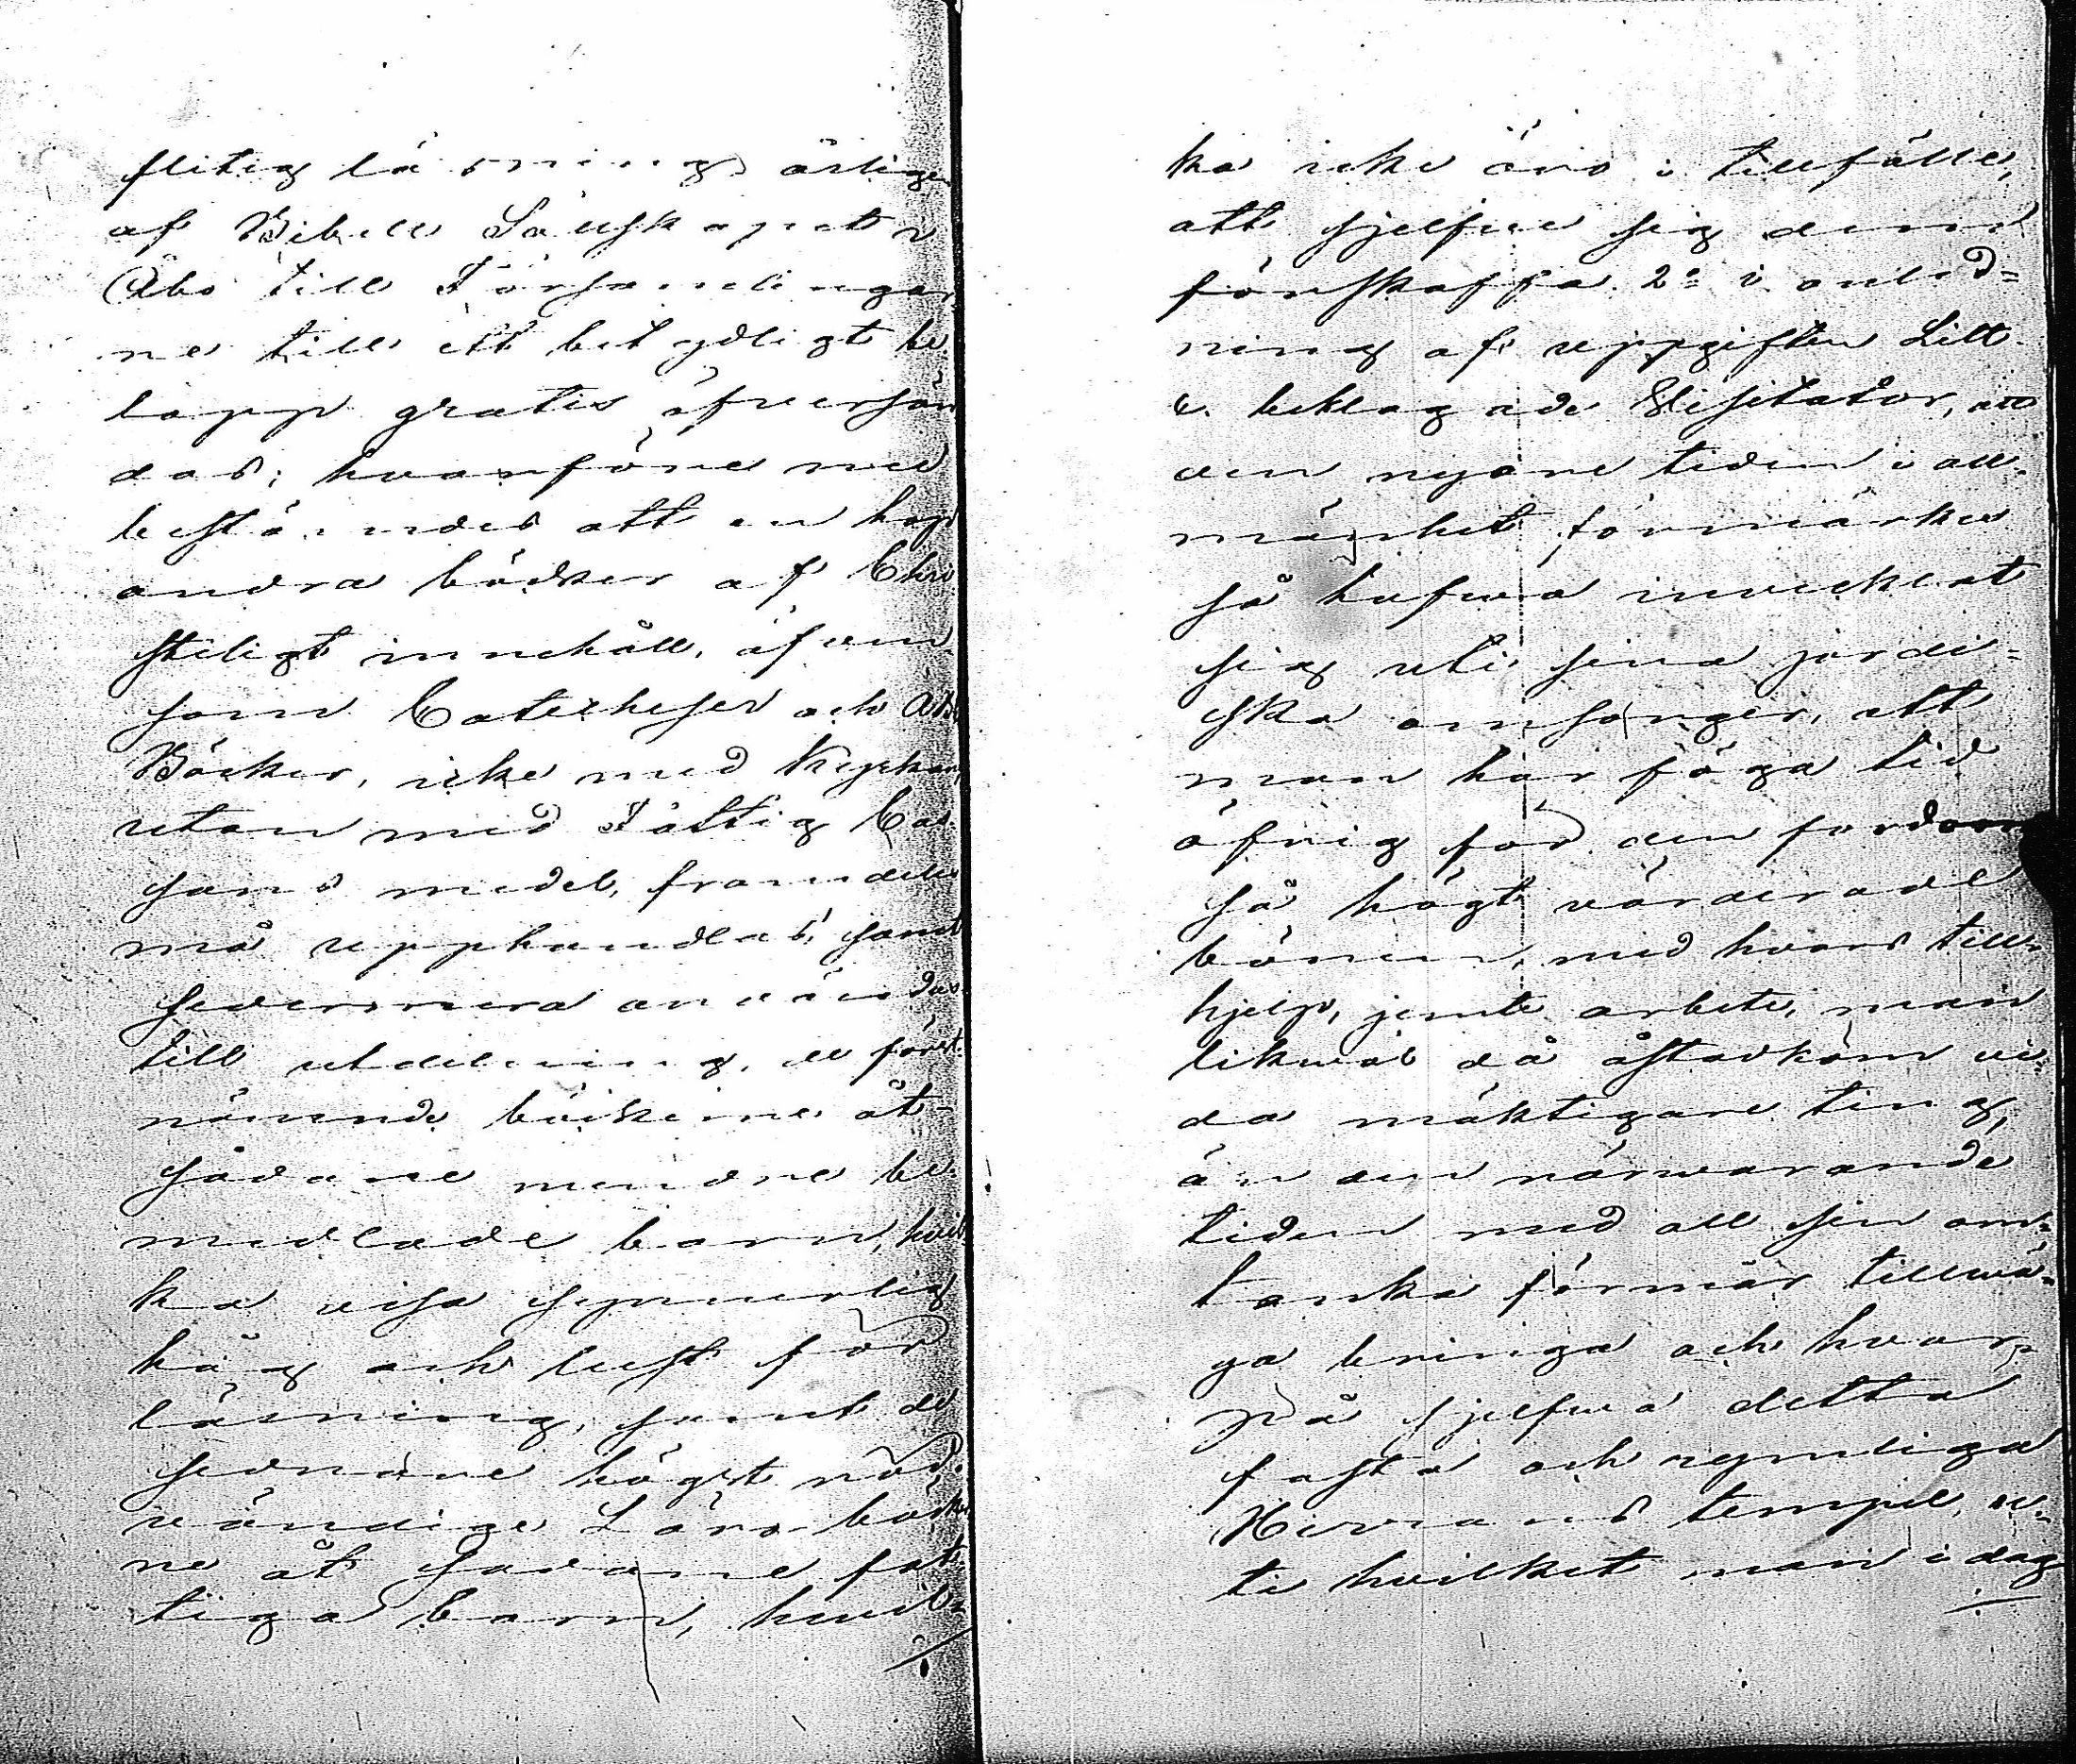 flitig läsning, årligen
af Bibell Sällskapet i
Åbo till Församlingar
ne till ett betydligt be
lopp gratis öfversän
das; hvarföre med
bestämdes att en hop
andra böcker af Chri
steligt innehåll, äfven
som Catecheser och Abc
Böcker, icke med Kyrkans
utan med Fattig Cas
sans medel, framdeles
må upphandlas, samt
sedermera användas
till utdelning, de förut
nämnde böckerne åt
sådane mindre be
medlade barn, hvil
ka visa synnerlig
håg och lust för
läsning, samt de
sednare högst nöd
vändige Läro böcker
ne åt sådane fat
tiga barn, hvil-
ka icke äro i tillfälle,
att sjelfve sig dem
förskaffa. 2o i anled=
ning af uppgiften Litt.
c. beklagade Visitator, att
den nyare tiden i all-
mänhet förmärkes
så hafva invecklat
sig uti sina jordi=
ska omsorger, att
man har föga tid
öfrig för den fordom
så högt värderade
bönen, med hvars till=
hjelp, jemte arbete, man
likväl då åstadkom vi=
da mäktigare ting,
än den närvarande
tiden med all sin om=
tanka förmår tillvä=
ga bringa och hvar=
på sjelfva detta
fasta och rymliga
Herrans tempel, u=
ti hvilket man i dag